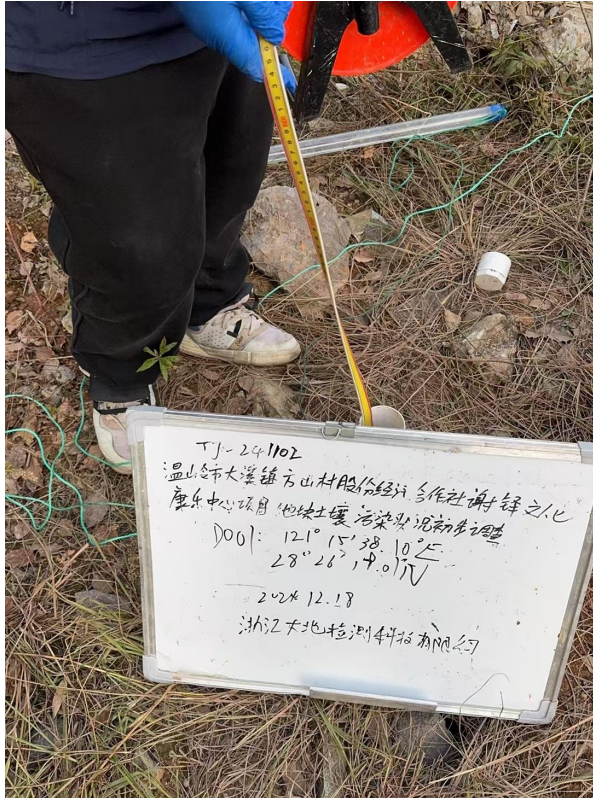 TJ-241102
温岭市大溪镇方山村股份经济合作社谢铎文化
康乐中心项目地块土壤污染状况初步调查
D001: 121° 15′ 38.10″E
28° 26′ 19.01″N
2024.12.18
浙江大地检测科技有限公司